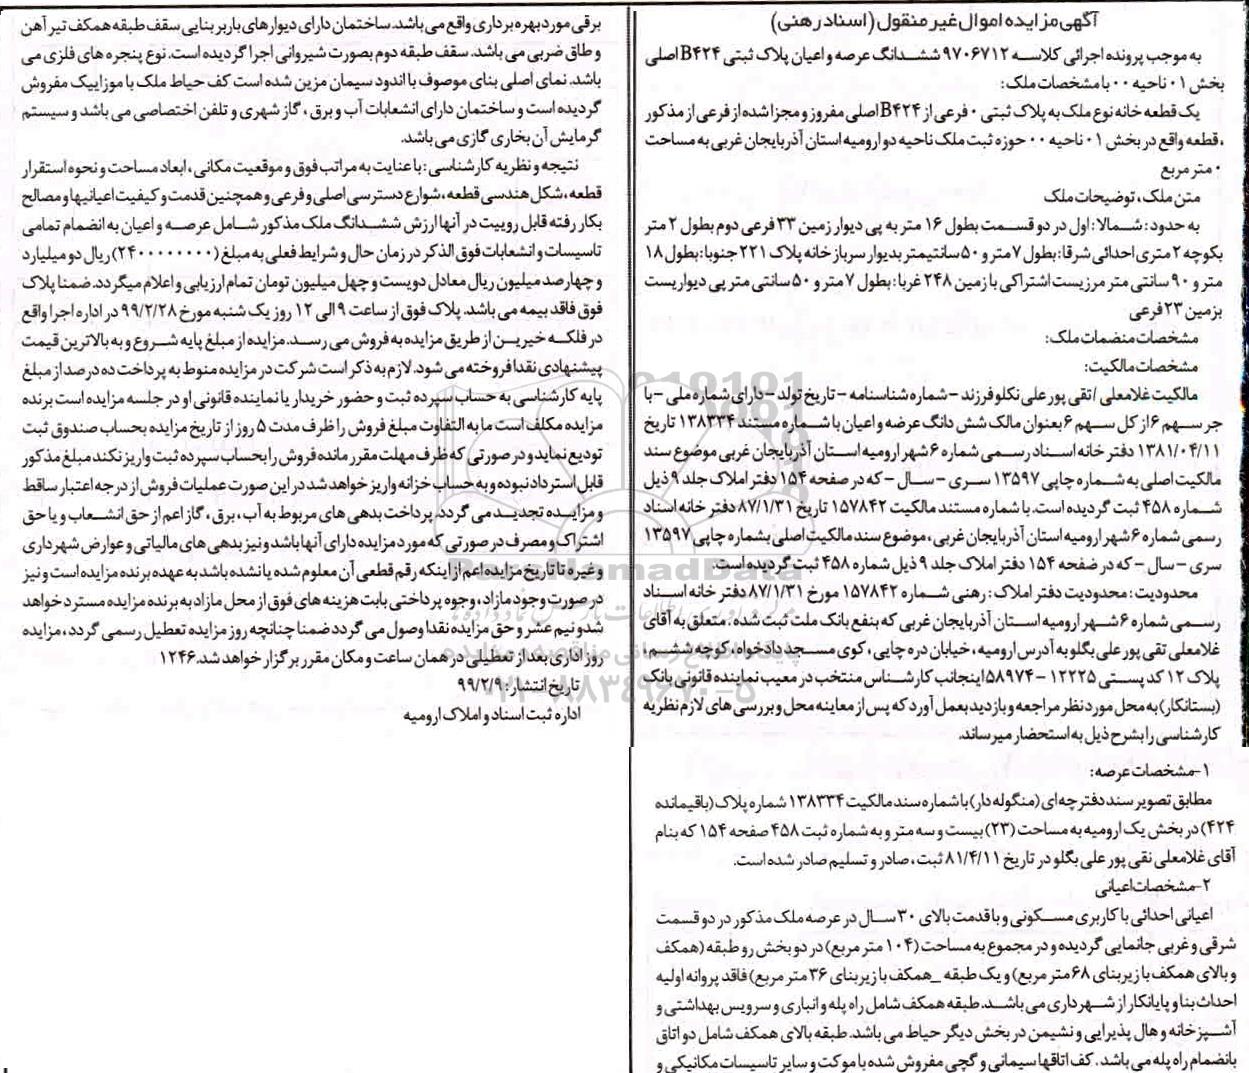 آگهی مزایده اموال غیر منقول (اسناد رهنی)
به موجب پرونده اجرائی کلاسه ۹۷۰۶۷۱۲ ششدانگ عرصه و اعیان پلاک ثبتی B۴۲۴ اصلی
بخش ۰۱ ناحیه ۰۰ با مشخصات ملک:
یک قطعه خانه نوع ملک به پلاک ثبتی ۰ فرعی از B۴۲۴ اصلی مفروز و مجزا شده از فرعی از مذکور
، قطعه واقع در بخش ۰۱ ناحیه ۰۰ حوزه ثبت ملک ناحیه دو ارومیه استان آذربایجان غربی به مساحت
۰ متر مربع
متن ملک، توضیحات ملک
به حدود: شمالا: اول در دو قسمت بطول ۱۶ متر به پی دیوار زمین ۳۳ فرعی دوم بطول ۲ متر
بکوچه ۲ متری احداثی شرقا: بطول ۷ متر و ۵۰ سانتیمتر بدیوار سرباز خانه پلاک ۲۲۱ جنوبا: بطول ۱۸
متر و ۹۰ سانتی متر مرزیست اشتراکی با زمین ۲۴۸ غربا: بطول ۷ متر و ۵۰ سانتی متر پی دیواریست
بزمین ۲۳ فرعی
مشخصات منضمات ملک:
مشخصات مالکیت:
مالکیت غلامعلی / تقی پور علی نکلو فرزند - شماره شناسنامه - تاریخ تولد - دارای شماره ملی - با
جز سهم ۶ از کل سهم ۶ بعنوان مالک شش دانگ عرضه و اعیان با شماره مستند ۱۳۸۳۳۴ تاریخ
۱۳۸۱/۰۴/۱۱ دفتر خانه اسناد رسمی شماره ۶ شهر ارومیه استان آذربایجان غربی موضوع سند
مالکیت اصلی به شماره چاپی ۱۳۵۹۷ سری - سال - که در صفحه ۱۵۴ دفتر املاک جلد ۹ ذیل
شماره ۴۵۸ ثبت گردیده است. با شماره مستند مالکیت ۱۵۷۸۴۲ تاریخ ۸۷/۱/۳۱ دفتر خانه اسناد
رسمی شماره ۶ شهر ارومیه استان آذربایجان غربی، موضوع سند مالکیت اصلی بشماره چاپی ۱۳۵۹۷
سری - سال - که در صفحه ۱۵۴ دفتر املاک جلد ۹ ذیل شماره ۴۵۸ ثبت گردیده است.
محدودیت: محدودیت دفتر املاک: رهنی شماره ۱۵۷۸۴۲ مورخ ۸۷/۱/۳۱ دفتر خانه اسناد
رسمی شماره ۶ شهر ارومیه استان آذربایجان غربی که بنفع بانک ملت ثبت شده. متعلق به آقای
غلامعلی تقی پور علی بگلو به آدرس ارومیه، خیابان دره چایی، کوی مسجد دادخواه، کوچه ششم،
پلاک ۱۲ کد پستی ۱۲۲۲۵ - ۵۸۹۷۴ اینجانب کارشناس منتخب در معیب نماینده قانونی بانک
(بستانکار) به محل مورد نظر مراجعه و بازدید بعمل آورد که پس از معاینه محل و بررسی های لازم نظریه
کارشناسی را بشرح ذیل به استحضار میرساند.
۱- مشخصات عرصه:
مطابق تصویر سند دفترچه ای (منگوله دار) با شماره سند مالکیت ۱۳۸۳۳۴ شماره پلاک (باقیمانده
۴۲۴) در بخش یک ارومیه به مساحت (۲۳) بیست و سه متر و به شماره ثبت ۴۵۸ صفحه ۱۵۴ که بنام
آقای غلامعلی نقی پور علی بگلو در تاریخ ۸۱/۴/۱۱ ثبت، صادر و تسلیم صادر شده است.
۲- مشخصات اعیانی
اعیانی احداثی با کاربری مسکونی و با قدمت بالای ۳۰ سال در عرصه ملک مذکور در دو قسمت
شرقی و غربی جانمایی گردیده و در مجموع به مساحت (۱۰۴ متر مربع) در دو بخش رو طبقه (همکف
و بالای همکف با زیربنای ۶۸ متر مربع) و یک طبقه _ همکف با زیربنای ۳۶ متر مربع) فاقد پروانه اولیه
احداث بنا و پایانکار از شهرداری می باشد. طبقه همکف شامل راه پله و انباری و سرویس بهداشتی و
آشپزخانه و هال پذیرایی و نشیمن در بخش دیگر حیاط می باشد. طبقه بالای همکف شامل دو اتاق
بانضمام راه پله می باشد. کف اتاقها سیمانی و گچی مفروش شده با موکت و سایر تاسیسات مکانیکی و
برقی مورد بهره برداری واقع می باشد. ساختمان دارای دیوارهای باربر بنایی سقف طبقه همکف تیر آهن
و طاق ضربی می باشد. سقف طبقه دوم بصورت شیروانی اجرا گردیده است. نوع پنجره های فلزی می
باشد. نمای اصلی بنای موصوف با اندود سیمان مزین شده است کف حیاط ملک با موزاییک مفروش
گردیده است و ساختمان دارای انشعابات آب و برق، گاز شهری و تلفن اختصاصی می باشد و سیستم
گرمایش آن بخاری گازی می باشد.
نتیجه و نظریه کارشناسی: با عنایت به مراتب فوق و موقعیت مکانی، ابعاد مساحت و نحوه استقرار
قطعه، شکل هندسی قطعه، شوارع دسترسی اصلی و فرعی و همچنین قدمت و کیفیت اعیانیها و مصالح
بکار رفته قابل روییت در آنها ارزش ششدانگ ملک مذکور شامل عرصه و اعیان به انضمام تمامی
تاسیسات و انشعابات فوق الذکر در زمان حال و شرایط فعلی به مبلغ (۲۴۰۰۰۰۰۰۰۰) ریال دو میلیارد
و چهارصد میلیون ریال معادل دویست و چهل میلیون تومان تمام ارزیابی و اعلام میگردد. ضمنا پلاک
فوق فاقد بیمه می باشد. پلاک فوق از ساعت ۹ الی ۱۲ روز یک شنبه مورخ ۹۹/۲/۲۸ در اداره اجرا واقع
در فلکه خیرین از طریق مزایده به فروش می رسد. مزایده از مبلغ پایه شروع و به بالاترین قیمت
پیشنهادی نقدا فروخته می شود. لازم به ذکر است شرکت در مزایده منوط به پرداخت ده درصد از مبلغ
پایه کارشناسی به حساب سپرده ثبت و حضور خریدار یا نماینده قانونی او در جلسه مزایده است برنده
مزایده مکلف است ما به التفاوت مبلغ فروش را ظرف مدت ۵ روز از تاریخ مزایده بحساب صندوق ثبت
تودیع نماید و در صورتی که ظرف مهلت مقرر مانده فروش را بحساب سپرده ثبت واریز نکند مبلغ مذکور
قابل استرداد نبوده و به حساب خزانه واریز خواهد شد در این صورت عملیات فروش از درجه اعتبار ساقط
و مزایده تجدید می گردد. پرداخت بدهی های مربوط به آب، برق، گاز اعم از حق انشعاب و یا حق
اشتراک و مصرف در صورتی که مورد مزایده دارای آنها باشد و نیز بدهی های مالیاتی و عوارض شهرداری
و غیره تا تاریخ مزایده اعم از اینکه رقم قطعی آن معلوم شده یا نشده باشد به عهده برنده مزایده است و نیز
در صورت وجود مازاد، وجوه پرداختی بابت هزینه های فوق از محل مازاد به برنده مزایده مسترد خواهد
شد و نیم عشر و حق مزایده نقدا وصول می گردد ضمنا چنانچه روز مزایده تعطیل رسمی گردد، مزایده
روز اداری بعد از تعطیلی در همان ساعت و مکان مقرر برگزار خواهد شد. ۱۲۴۶
تاریخ انتشار: ۹۹/۲/۹
اداره ثبت اسناد و املاک ارومیه
ParsNamadData
پایگاه اطلاع رسانی مناقصه و مزایده
۰۲۱-۸۸۳۴۹۶۷۰-۵